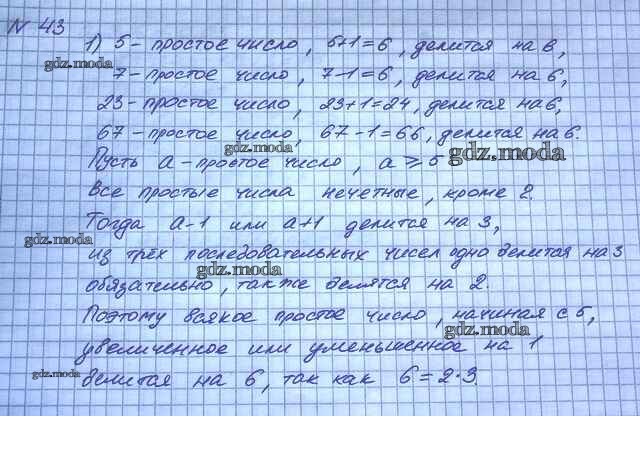 № 43
1) 5 - простое число, 5+1=6, делится на 6,
gdz.moda
7 - простое число, 7-1=6, делится на 6,
23 - простое число, 23+1=24, делится на 6,
67 - простое число, 67-1=66, делится на 6.
gdz.moda
gdz.moda
Пусть а - простое число, а ⩾ 5
Все простые числа нечетные, кроме 2.
Тогда а-1 или а+1 делится на 3,
gdz.moda
из трёх последовательных чисел одно делится на 3
gdz.moda
обязательно, также делятся на 2.
Поэтому всякое простое число, начиная с 5,
gdz.moda
увеличенное или уменьшенное на 1
gdz.moda
делится на 6, так как 6=2·3.